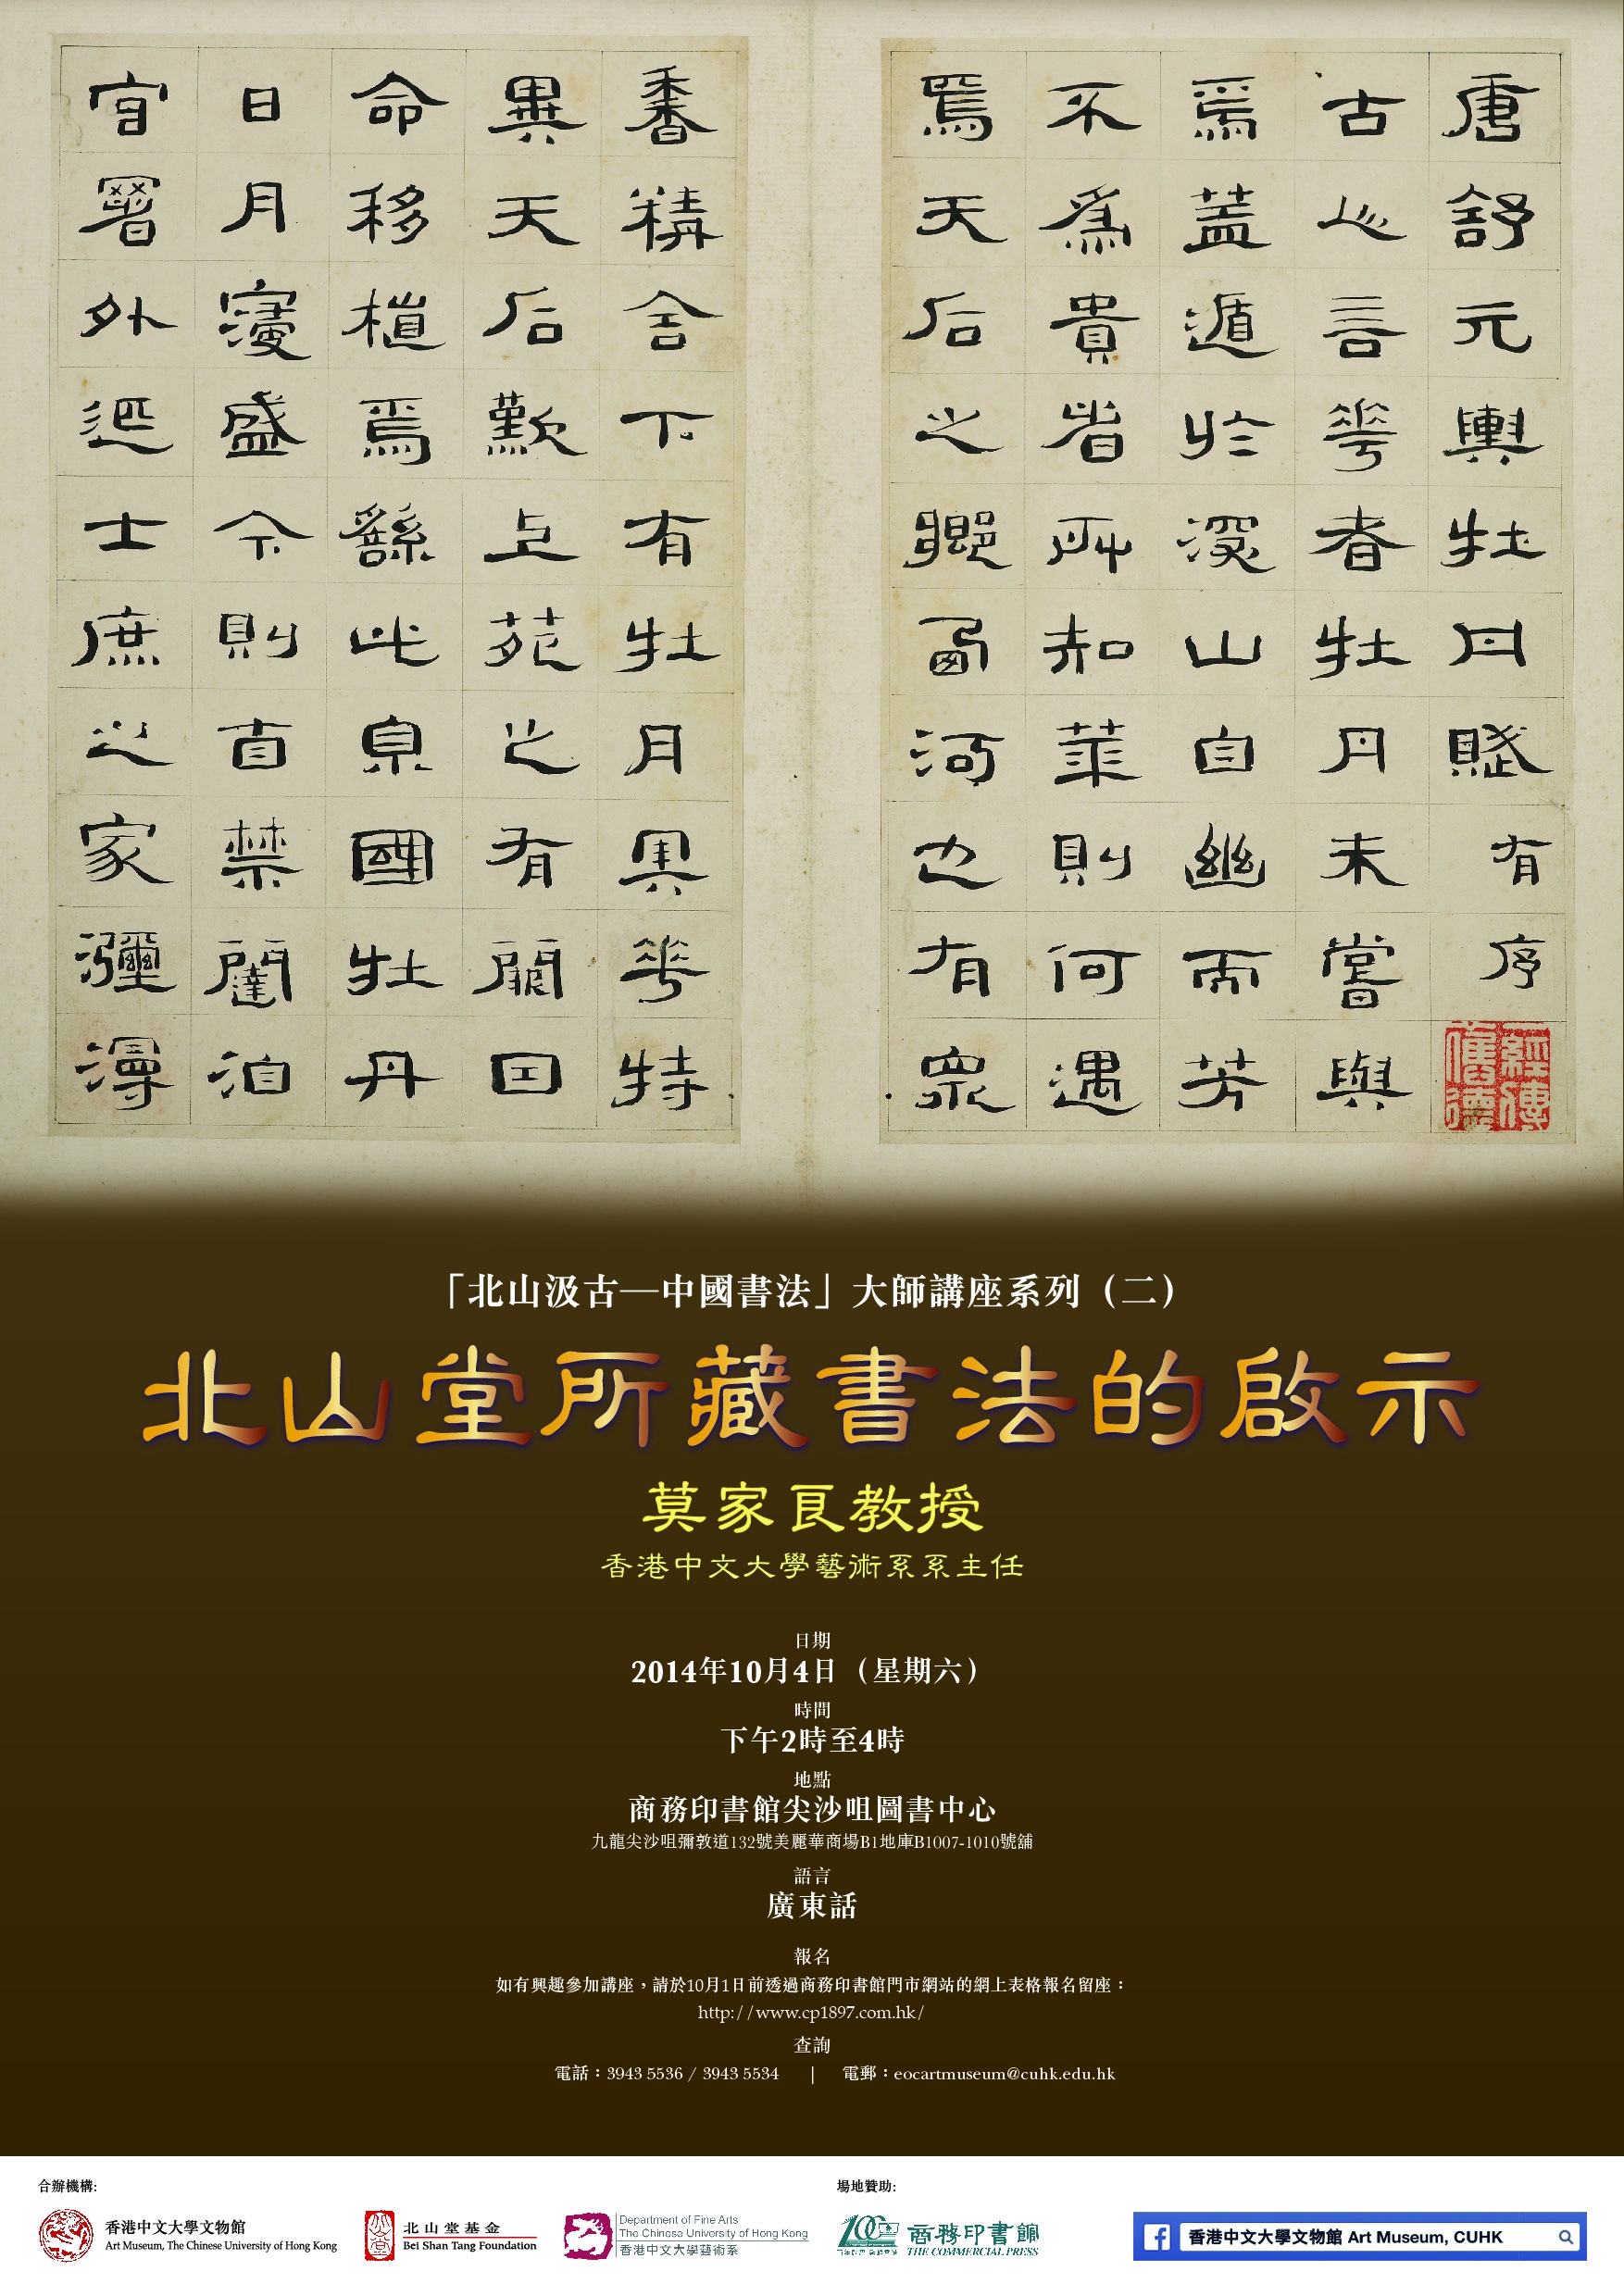 唐舒元輿牡丹賦 有序
古人言華者牡丹未嘗與
焉蓋遁於深山自幽而芳
不為貴者所知華則何遇
焉天后之鄉西河也有眾
香精舍下有牡丹其華特
異天后歎上苑之有闕因
命移植焉繇此京國牡丹
日月寖盛今則自禁闥洎
官署外延士庶之家瀰漫
「北山汲古—中國書法」大師講座系列（二）
北山堂所藏書法的啟示
莫家良教授
香港中文大學藝術系系主任
日期
2014年10月4日（星期六）
時間
下午2時至4時
地點
商務印書館尖沙咀圖書中心
九龍尖沙咀彌敦道132號美麗華商場B1地庫B1007-1010號舖
語言
廣東話
報名
如有興趣參加講座，請於10月1日前透過商務印書館門市網站的網上表格報名留座：
http://www.cp1897.com.hk/
查詢
電話：3943 5536 / 3943 5534 | 電郵：eocartmuseum@cuhk.edu.hk
合辦機構:
香港中文大學文物館
Art Museum, The Chinese University of Hong Kong
北山堂基金
Bei Shan Tang Foundation
Department of Fine Arts
The Chinese University of Hong Kong
香港中文大學藝術系
場地贊助:
100
商務印書館
THE COMMERCIAL PRESS
香港中文大學文物館 Art Museum, CUHK